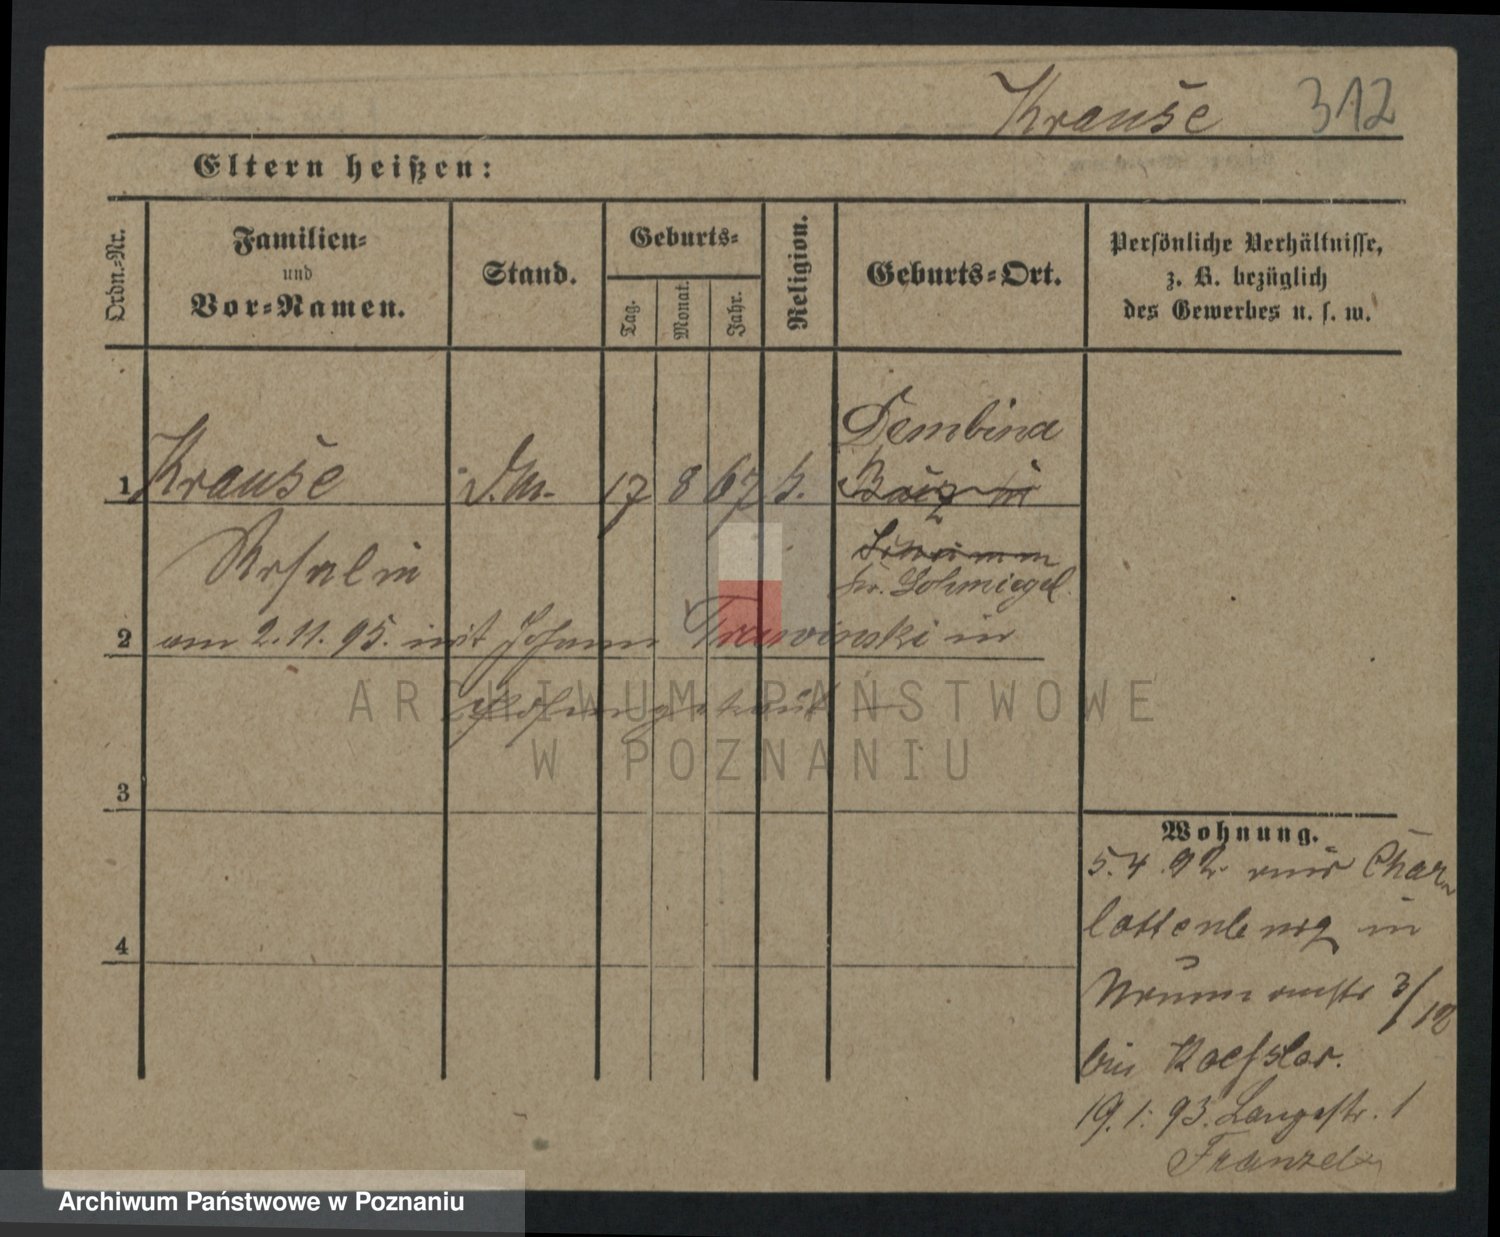 Krause 312
Eltern heißen:
Ordn.-Nr.
Familien-
und
Vor-Namen.
Stand.
Geburts-
Tag.
Monat.
Jahr.
Religion.
Geburts-Ort.
Persönliche Verhältnisse,
z. B. bezüglich
des Gewerbes u. s. w.
Dembina
1 Krause D.M. 17 8 67 k.
Schrimm
kr. Schmiegel
2 am 2.11.95. mit Johann Trawinski in
Posen getraut
ARCHIWUM PAŃSTWOWE
W POZNANIU
3
4
Wohnung.
5.4.92. aus Char-
lottenburg in
3/12
bei Koessler.
19.1.93. Langestr. 1
Archiwum Państwowe w Poznaniu